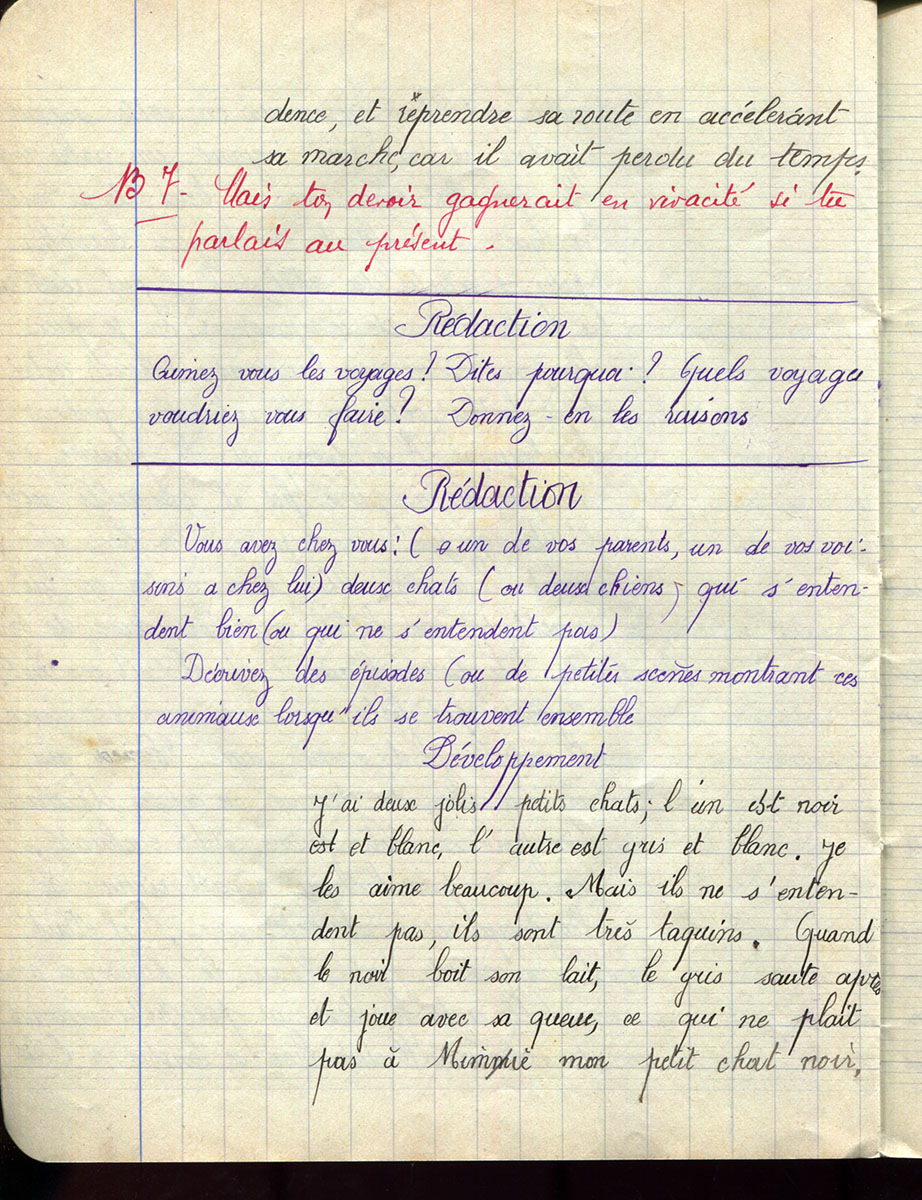 dence, et réprendre sa route en accélerant
sa marche, car il avait perdu du temps.
B 7 - Mais ton devoir gagnerait en vivacité si tu
parlais au présent.
Rédaction
Aimez vous les voyages? Dites pourquoi? Quels voyages
voudriez vous faire? Donnez-en les raisons
Rédaction
Vous avez chez vous: ( o un de vos parents, un de vos voi-
sins a chez lui) deux chats (ou deux chiens) qui s'enten-
dent bien (ou qui ne s'entendent pas)
Décrivez des épisodes (ou de petites scènes montrant ces
animaux lorsqu'ils se trouvent ensemble
Développement
J'ai deux jolis petits chats; l'un est noir
est et blanc, l'autre est gris et blanc. Je
les aime beaucoup. Mais ils ne s'enten-
dent pas, ils sont très taquins. Quand
le noir boit son lait, le gris saute après
et joue avec sa queue, ce qui ne plait
pas à Mimmie mon petit chat noir.